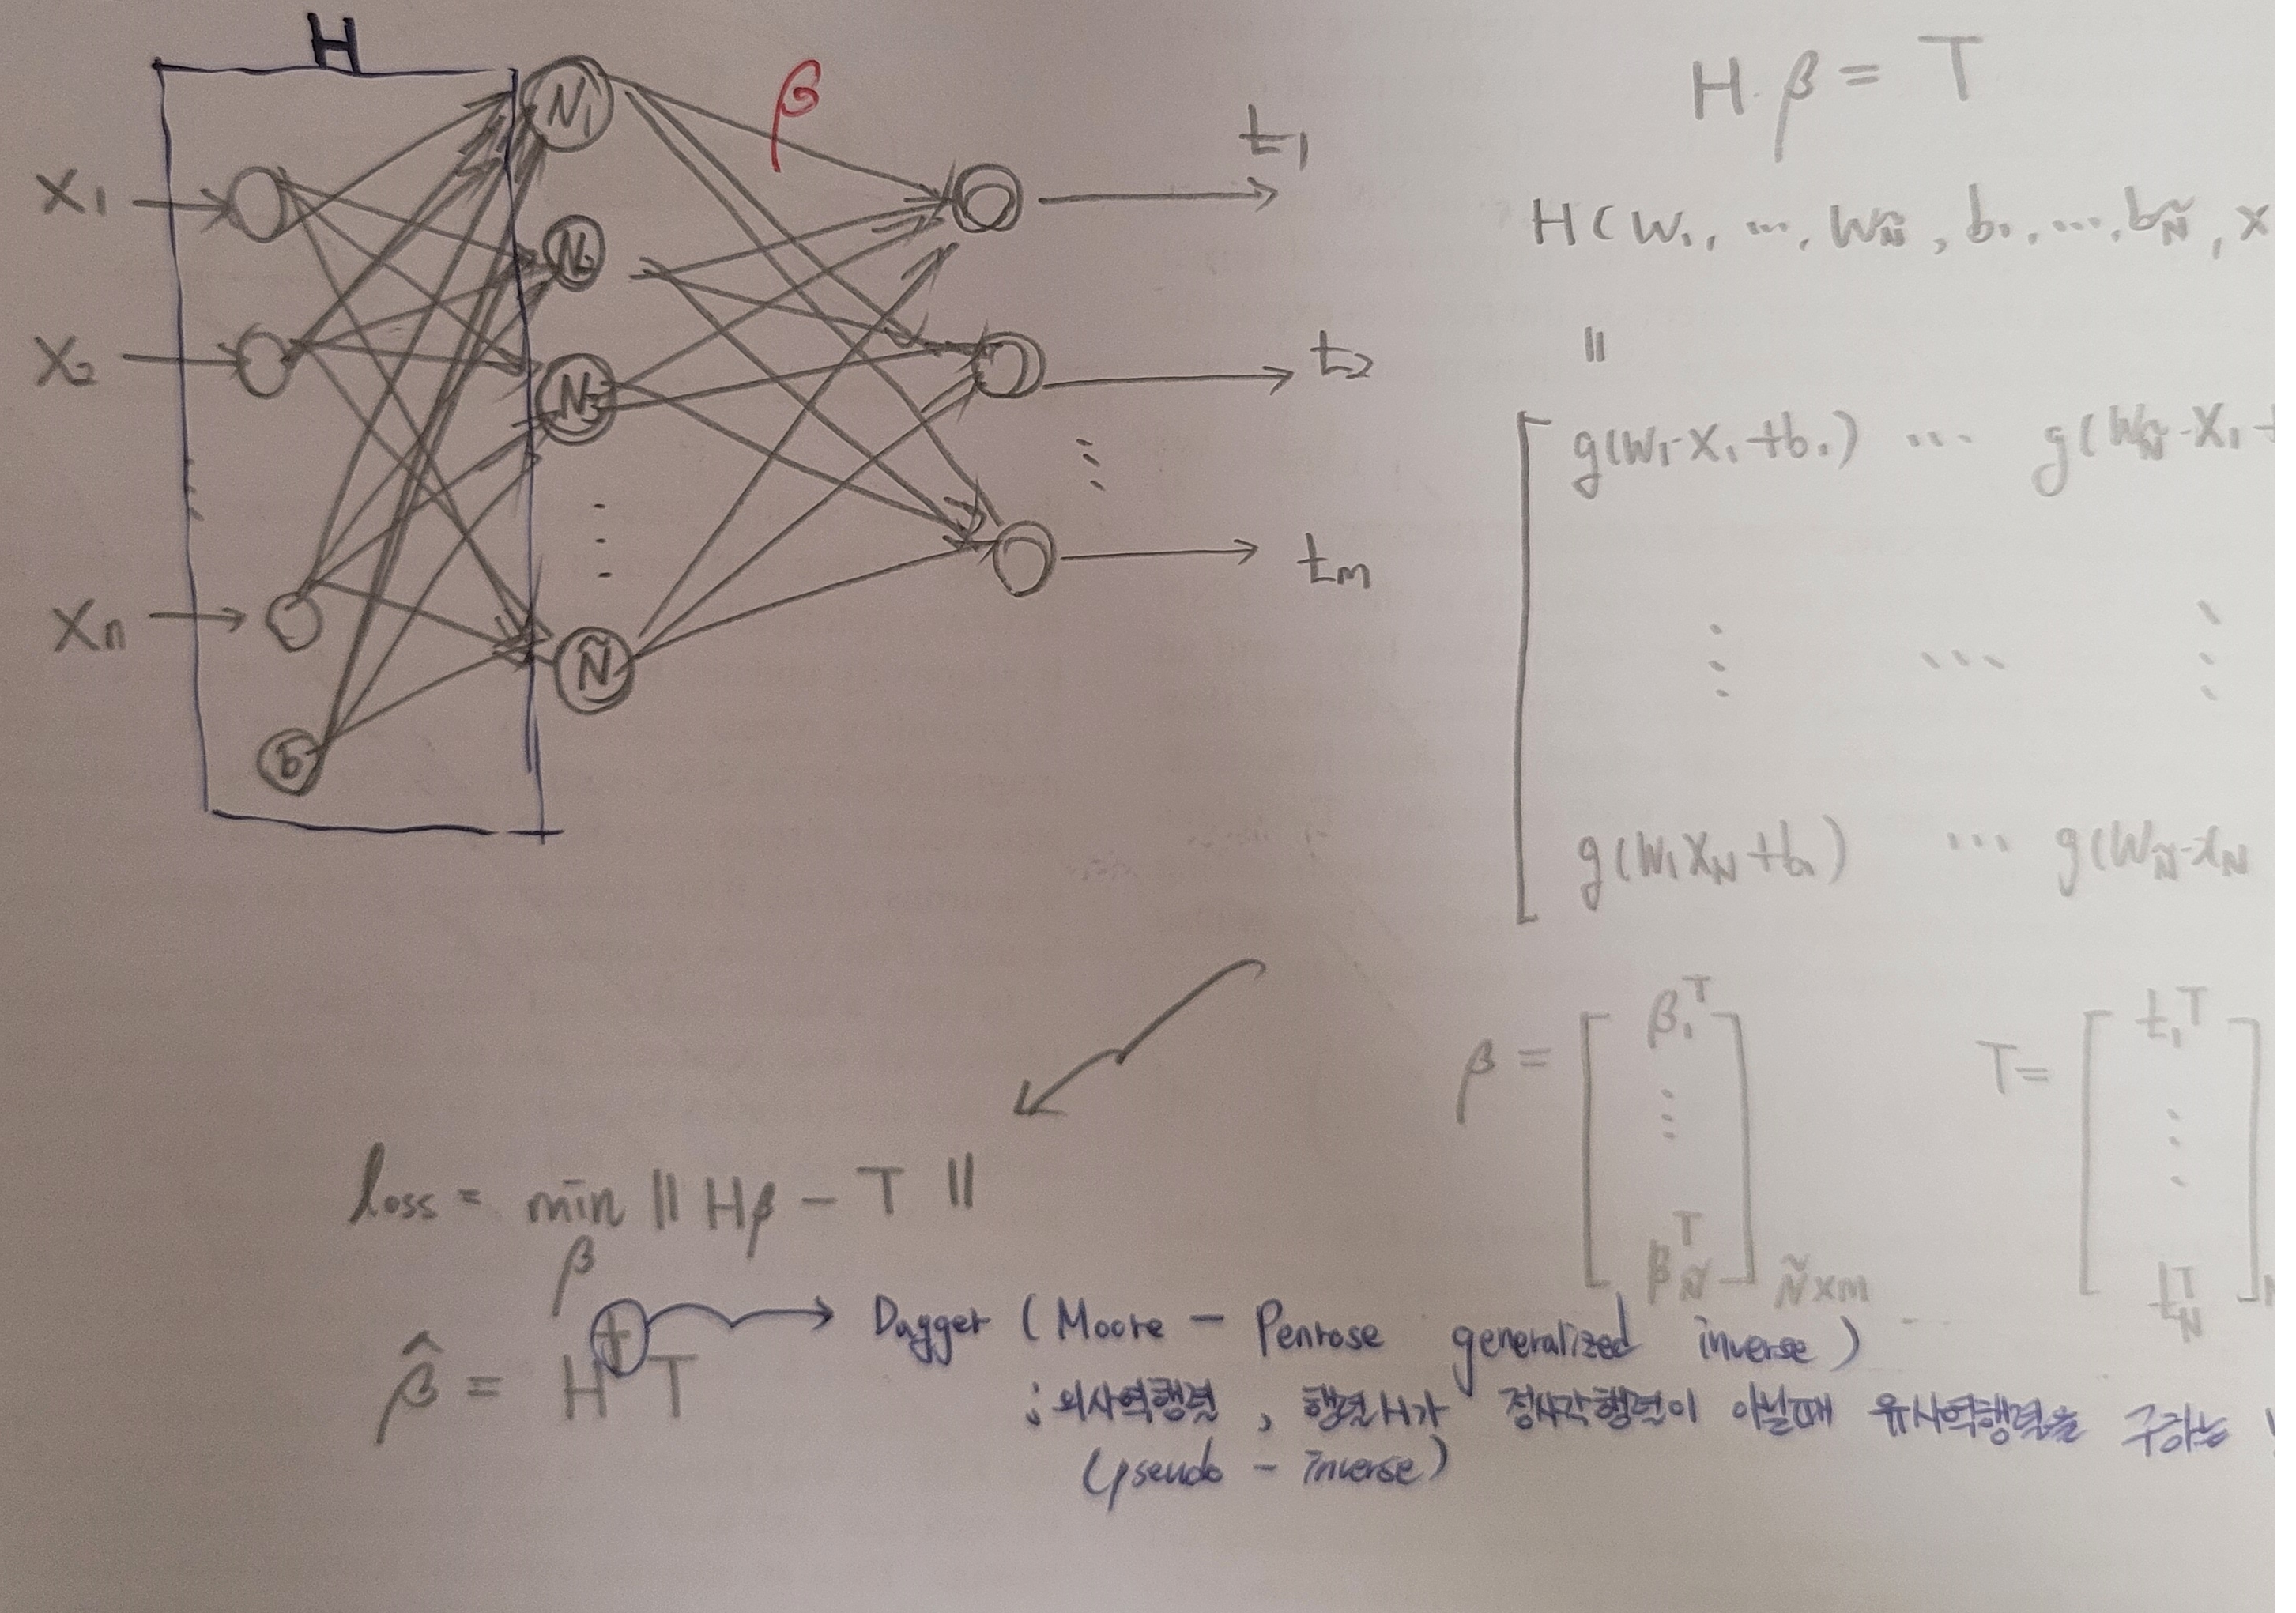 H
β
N₁
N₂
N₃
Ñ
b
x₁
x₂
⋮
xₙ
t₁
t₂
⋮
tₘ
H·β = T
H(w₁, ⋯, w_Ñ, b₁, ⋯, b_Ñ, x
||
g(w₁·x₁+b₁) ⋯ g(w_Ñ·x₁+
⋮ ⋯ ⋮
g(w₁x_N+b₁) ⋯ g(w_Ñ·x_N
β = [β₁ᵀ ⋮ β_Ñᵀ] Ñ×m
T = [t₁ᵀ ⋮ t_Nᵀ] N
loss = min ‖Hβ − T‖
β
β̂ = H†T → Dagger (Moore - Penrose generalized inverse)
; 의사역행렬, 행렬H가 정사각행렬이 아닐때 유사역행렬을 구하는
(pseudo - inverse)